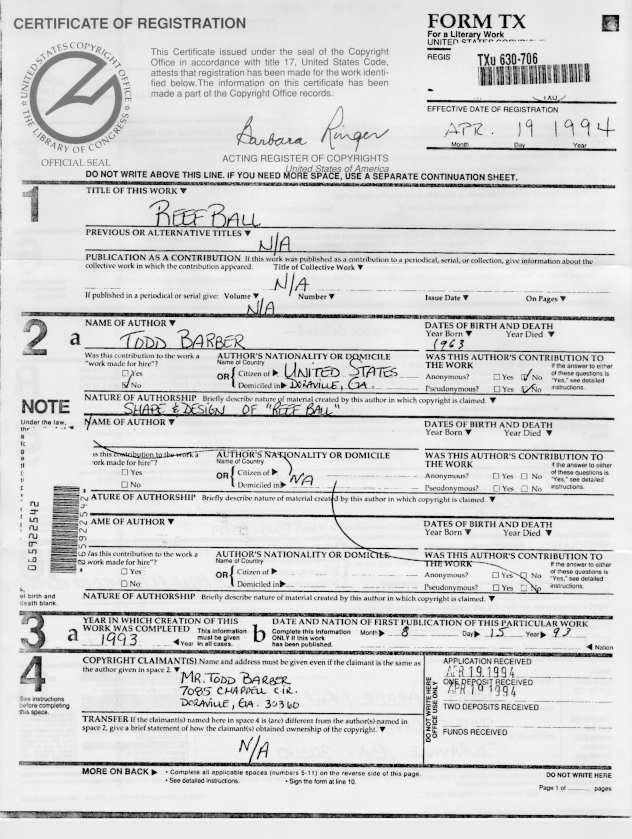 CERTIFICATE OF REGISTRATION
FORM TX
For a Literary Work
UNITED STATES COPYRIGHT
REGIS
TXu 630-706
TXU
UNITED STATES COPYRIGHT OFFICE
THE LIBRARY OF CONGRESS
OFFICIAL SEAL
This Certificate issued under the seal of the Copyright
Office in accordance with title 17, United States Code,
attests that registration has been made for the work identi-
fied below. The information on this certificate has been
made a part of the Copyright Office records.
Barbara Ringer
ACTING REGISTER OF COPYRIGHTS
United States of America
EFFECTIVE DATE OF REGISTRATION
APR. 19 1994
Month Day Year
DO NOT WRITE ABOVE THIS LINE. IF YOU NEED MORE SPACE, USE A SEPARATE CONTINUATION SHEET.
1
TITLE OF THIS WORK ▼
REEF BALL
PREVIOUS OR ALTERNATIVE TITLES ▼
N/A
PUBLICATION AS A CONTRIBUTION If this work was published as a contribution to a periodical, serial, or collection, give information about the
collective work in which the contribution appeared. Title of Collective Work ▼
N/A
If published in a periodical or serial give: Volume ▼ Number ▼ Issue Date ▼ On Pages ▼
N/A
2
a
NAME OF AUTHOR ▼
TODD BARBER
DATES OF BIRTH AND DEATH
Year Born ▼ Year Died ▼
1963
Was this contribution to the work a
"work made for hire"?
☐ Yes
☑ No
AUTHOR'S NATIONALITY OR DOMICILE
Name of Country
OR { Citizen of ▶ UNITED STATES
Domiciled in ▶ DORAVILLE, GA.
WAS THIS AUTHOR'S CONTRIBUTION TO
THE WORK
Anonymous? ☐ Yes ☑ No
Pseudonymous? ☐ Yes ☑ No
If the answer to either
of these questions is
"Yes," see detailed
instructions.
NATURE OF AUTHORSHIP Briefly describe nature of material created by this author in which copyright is claimed. ▼
SHAPE & DESIGN OF "REEF BALL"
NOTE
Under the law,
NAME OF AUTHOR ▼
DATES OF BIRTH AND DEATH
Year Born ▼ Year Died ▼
is this contribution to the work a
work made for hire"?
☐ Yes
☐ No
AUTHOR'S NATIONALITY OR DOMICILE
Name of Country
OR { Citizen of ▶
Domiciled in ▶ N/A
WAS THIS AUTHOR'S CONTRIBUTION TO
THE WORK
Anonymous? ☐ Yes ☐ No
Pseudonymous? ☐ Yes ☐ No
If the answer to either
of these questions is
"Yes," see detailed
instructions.
ATURE OF AUTHORSHIP Briefly describe nature of material created by this author in which copyright is claimed. ▼
AME OF AUTHOR ▼
DATES OF BIRTH AND DEATH
Year Born ▼ Year Died ▼
as this contribution to the work a
work made for hire"?
☐ Yes
☐ No
AUTHOR'S NATIONALITY OR DOMICILE
Name of Country
OR { Citizen of ▶
Domiciled in ▶
WAS THIS AUTHOR'S CONTRIBUTION TO
THE WORK
Anonymous? ☐ Yes ☐ No
Pseudonymous? ☐ Yes ☐ No
If the answer to either
of these questions is
"Yes," see detailed
instructions.
of birth and
death blank.
NATURE OF AUTHORSHIP Briefly describe nature of material created by this author in which copyright is claimed. ▼
3
a
YEAR IN WHICH CREATION OF THIS
WORK WAS COMPLETED
This information
must be given
in all cases.
1993
◀ Year
b
DATE AND NATION OF FIRST PUBLICATION OF THIS PARTICULAR WORK
Complete this information
ONLY if this work
has been published.
Month ▶ 8 Day ▶ 15 Year ▶ 93
◀ Nation
4
See instructions
before completing
this space.
COPYRIGHT CLAIMANT(S) Name and address must be given even if the claimant is the same as
the author given in space 2. ▼
MR. TODD BARBER
7085 CHAPPELL CIR.
DORAVILLE, GA. 30360
TRANSFER If the claimant(s) named here in space 4 is (are) different from the author(s) named in
space 2, give a brief statement of how the claimant(s) obtained ownership of the copyright. ▼
N/A
DO NOT WRITE HERE
OFFICE USE ONLY
APPLICATION RECEIVED
APR 19. 1994
ONE DEPOSIT RECEIVED
APR 19 1994
TWO DEPOSITS RECEIVED
FUNDS RECEIVED
MORE ON BACK ▶
• Complete all applicable spaces (numbers 5-11) on the reverse side of this page.
• See detailed instructions. • Sign the form at line 10.
DO NOT WRITE HERE
Page 1 of pages